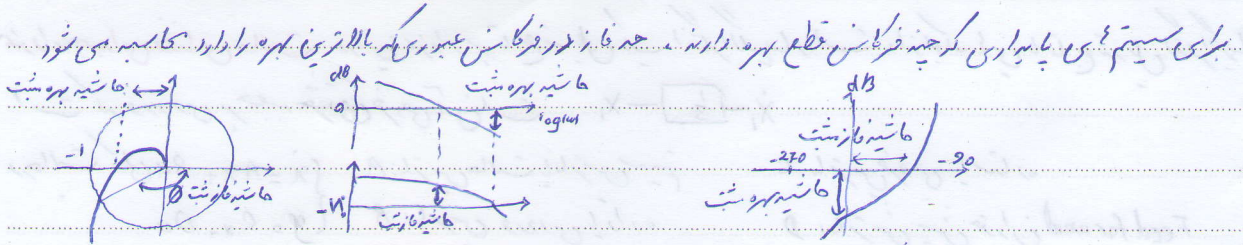 برای سیستم های پایداری که چند فرکانس قطع بهره دارند، حد فاز در فرکانس عبوری که بالاترین بهره را دارد محاسبه می شود
حاشیه بهره مثبت
-1
φ
حاشیه فاز مثبت
dB
0
حاشیه بهره مثبت
logω
-180
حاشیه فاز مثبت
dB
حاشیه فاز مثبت
-270
-90
حاشیه بهره مثبت